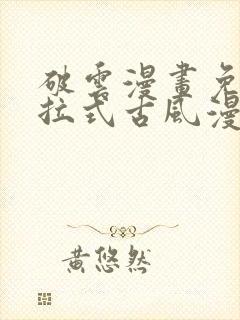 破雲漫畫免
拉式古風漫
黃悠然